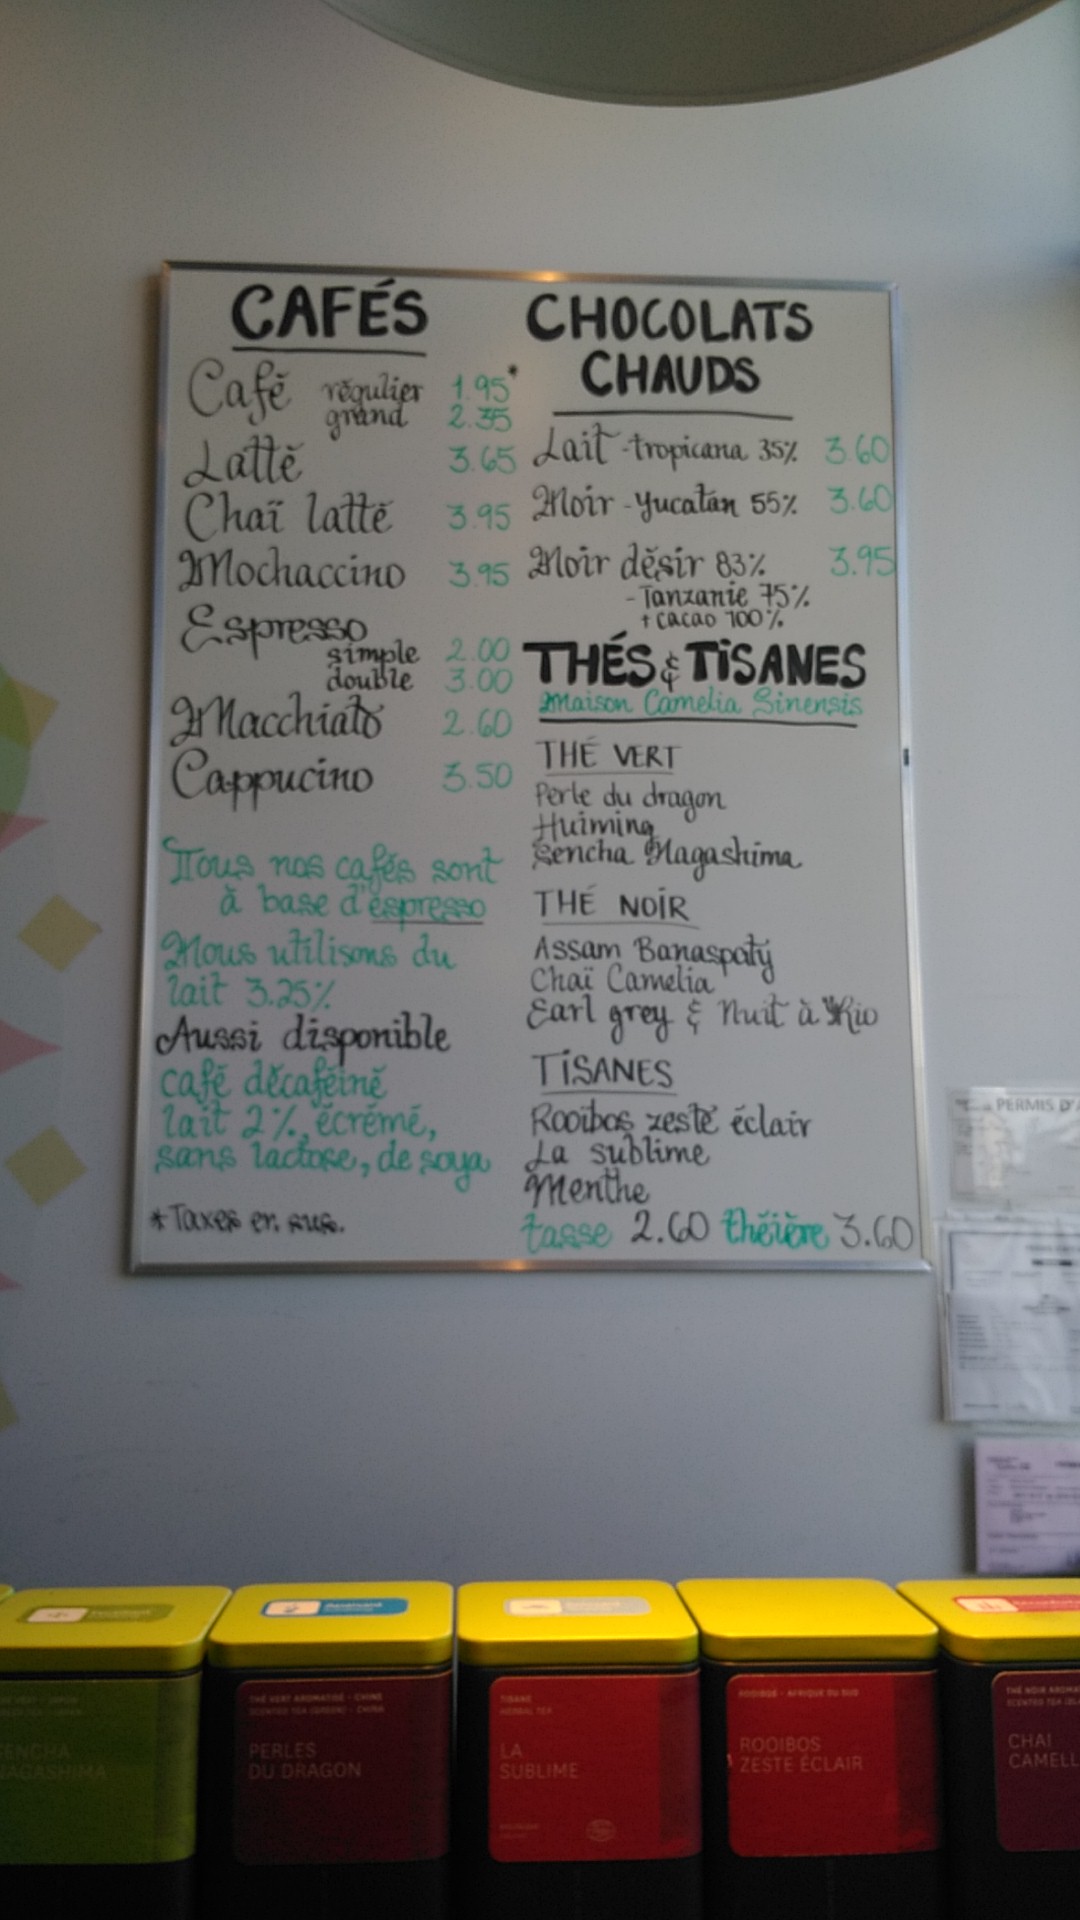 CAFÉS
Café régulier 1.95*
grand 2.35
Latté 3.65
Chaï latté 3.95
Mochaccino 3.95
Espresso
simple 2.00
double 3.00
Macchiato 2.60
Cappucino 3.50
Tous nos cafés sont
à base d'espresso
Nous utilisons du
lait 3.25%
Aussi disponible
café décaféiné
lait 2%, écrémé,
sans lactose, de soya
*Taxes en sus.
CHOCOLATS
CHAUDS
Lait - tropicana 35% 3.60
Noir - Yucatán 55% 3.60
Noir désir 83% 3.95
- Tanzanie 75%
+ cacao 100%
THÉS & TISANES
Maison Camelia Sinensis
THÉ VERT
Perle du dragon
Huiming
Sencha Nagashima
THÉ NOIR
Assam Banaspaty
Chaï Camelia
Earl grey & Nuit à Rio
TISANES
Rooibos zeste éclair
La sublime
Menthe
tasse 2.60 théière 3.60
PERMIS D'A
SENCHA
NAGASHIMA
THÉ VERT AROMATISÉ - CHINE
SCENTED TEA (GREEN) - CHINA
PERLES
DU DRAGON
TISANE
HERBAL TEA
LA
SUBLIME
ROOIBOS - AFRIQUE DU SUD
ROOIBOS
ZESTE ÉCLAIR
THÉ NOIR AROMA
CHAI
CAMELL